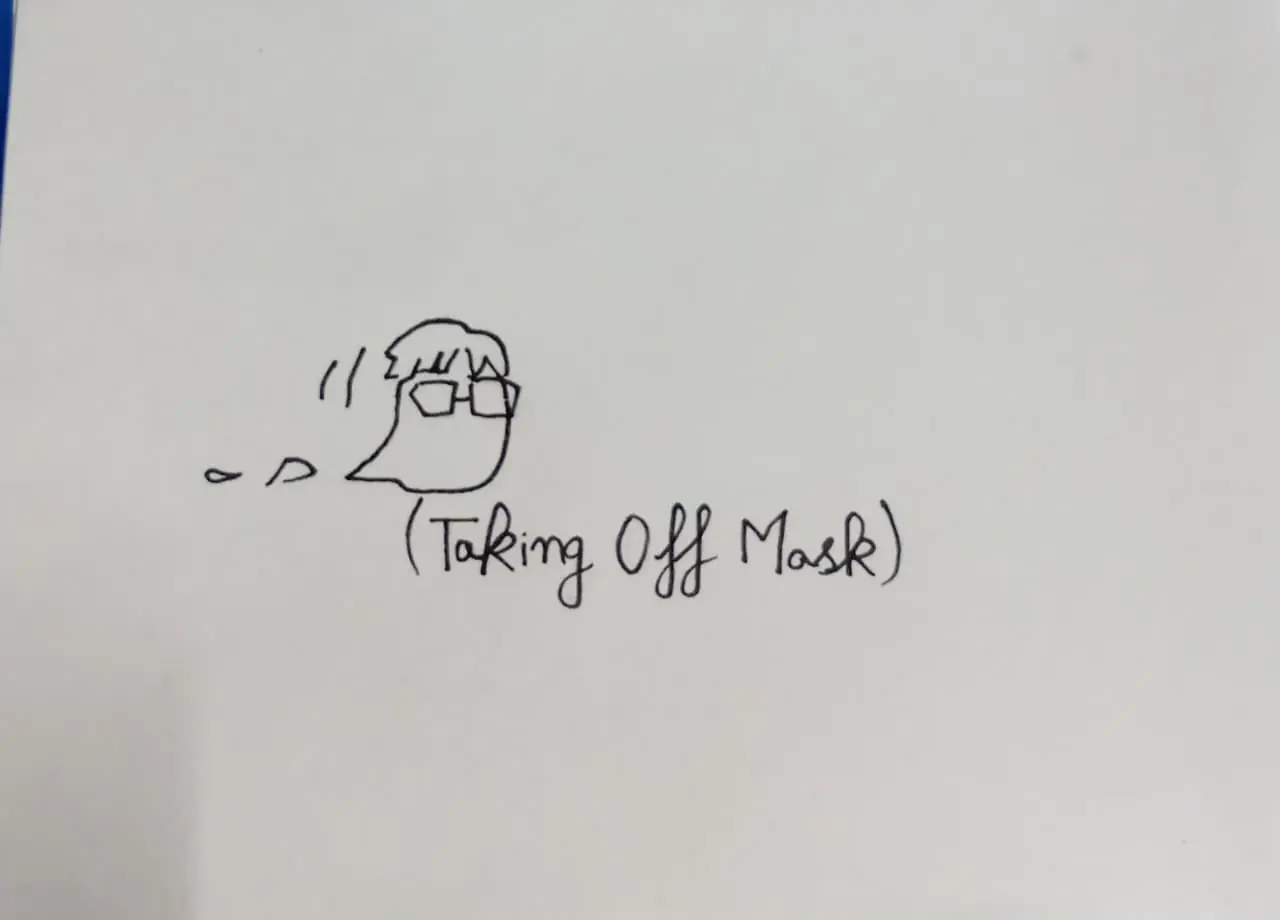 (Taking Off Mask)